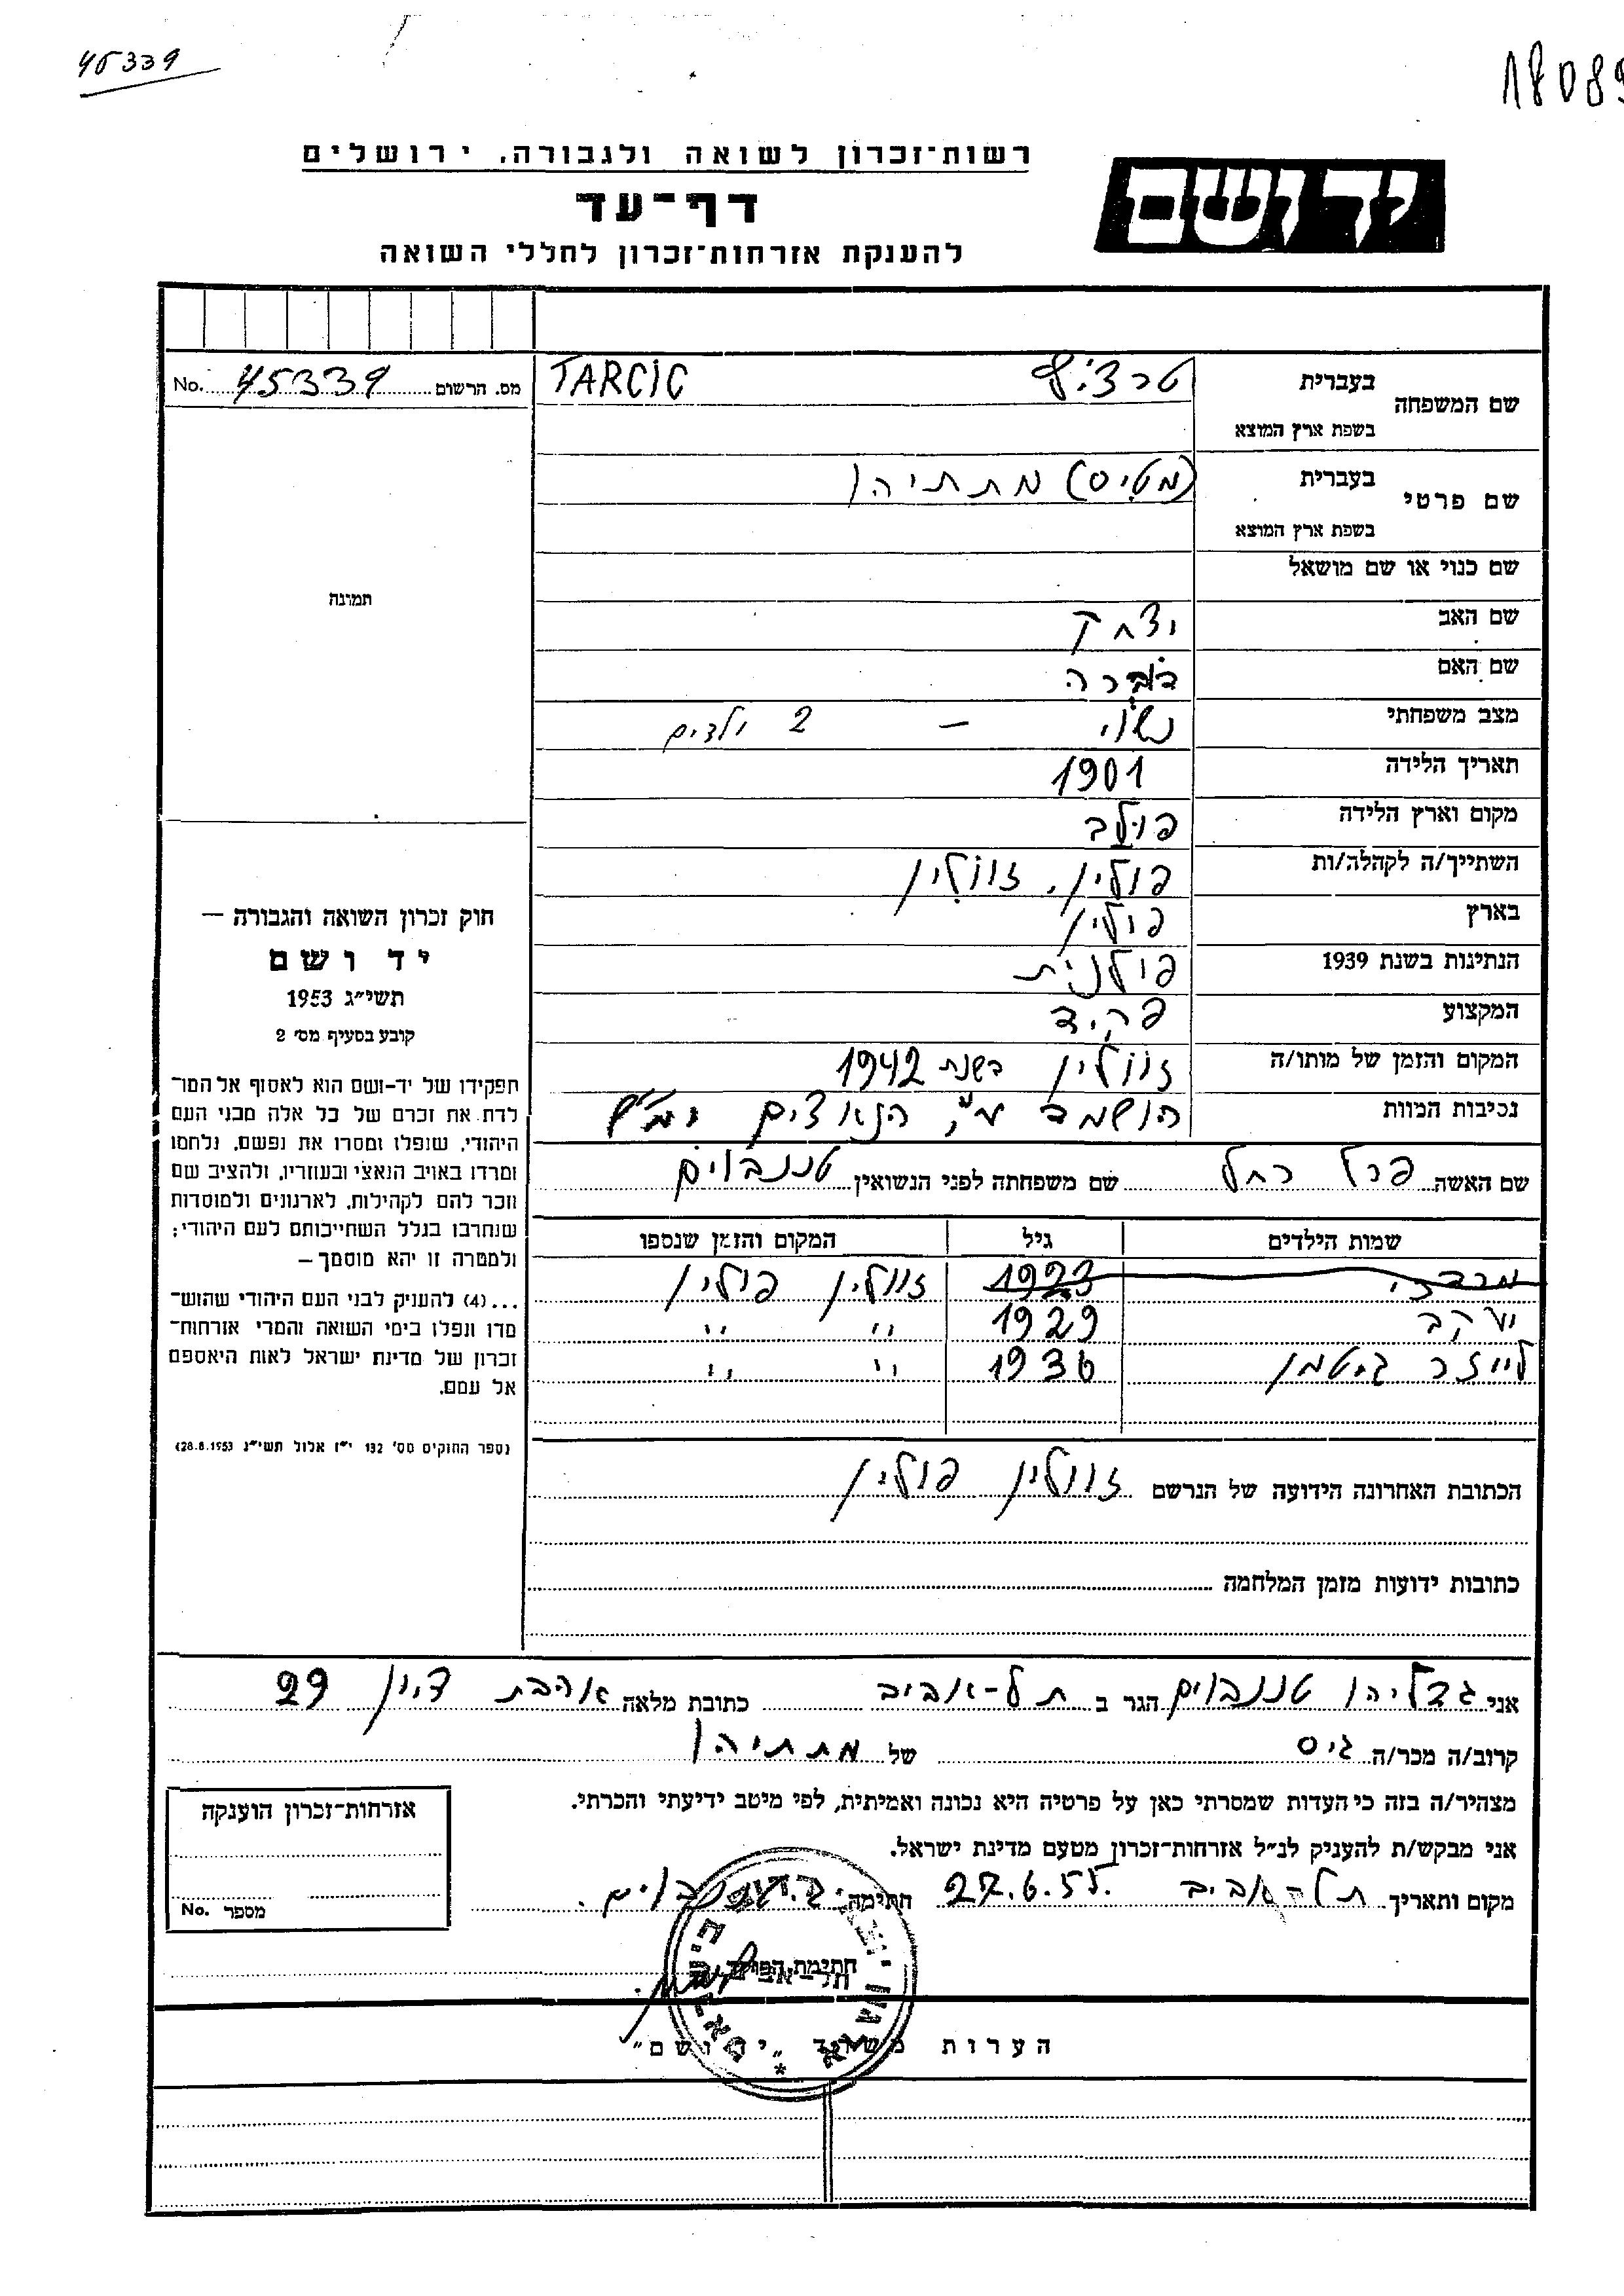 45339
18089
רשות־זכרון לשואה ולגבורה, ירושלים
יד ושם
דף־עד
להענקת אזרחות־זכרון לחללי השואה
שם המשפחה בעברית
TARCIC
בשפת ארץ המוצא
מס. הרשום 45339 No.
שם פרטי בעברית (מטיס) מתתיהו
בשפת ארץ המוצא
שם כנוי או שם מושאל
תמונה
שם האב יצחק
שם האם דוברה
מצב משפחתי נשוי – 2 ילדים
תאריך הלידה 1901
מקום וארץ הלידה
השתייך/ה לקהלה/ות פולין, זוולין
בארץ פולין
הנתינות בשנת 1939 פולנית
המקצוע פקיד
המקום והזמן של מותו/ה זוולין בשנת 1942
נסיבות המוות הושמד ע"י הנאצים ימ"ש
שם האשה פרל רחל שם משפחתה לפני הנשואין טננבוים
שמות הילדים גיל המקום והזמן שנספו
מרדכי 1923 זוולין פולין
יעקב 1929 " "
לייזר גוטמן 1936 " "
הכתובת האחרונה הידועה של הנרשם זוולין פולין
כתובות ידועות מזמן המלחמה
חוק זכרון השואה והגבורה —
יד ושם
תשי"ג 1953
קובע בסעיף מס' 2
תפקידו של יד־ושם הוא לאסוף אל המו־
לדת את זכרם של כל אלה מבני העם
היהודי, שנפלו ומסרו את נפשם, נלחמו
ומרדו באויב הנאצי ובעוזריו, ולהציב שם
וזכר להם לקהילות, לארגונים ולמוסדות
שנחרבו בגלל השתייכותם לעם היהודי;
ולמטרה זו יהא מוסמך —
...(4) להענק לבני העם היהודי שהוש־
מדו ונפלו בימי השואה והמרי אזרחות־
זכרון של מדינת ישראל לאות היאספם
אל עמם.
(ספר החוקים מס' 132 י"ז אלול תשי"ג 28.8.1953)
אני גדליהו טננבוים הגר ב תל־אביב כתובת מלאה אהבת ציון 29
קרוב/ה מכר/ה גיס של מתתיהו
מצהיר/ה בזה כי העדות שמסרתי כאן על פרטיה היא נכונה ואמיתית, לפי מיטב ידיעתי והכרתי.
אני מבקש/ת להעניק לנ"ל אזרחות־זכרון מטעם מדינת ישראל.
מקום ותאריך תל־אביב 27.6.55 חתימה
אזרחות־זכרון הוענקה
מספר No.
חתימת הפוקד
תל־אביב
הערות משרד "יד ושם"